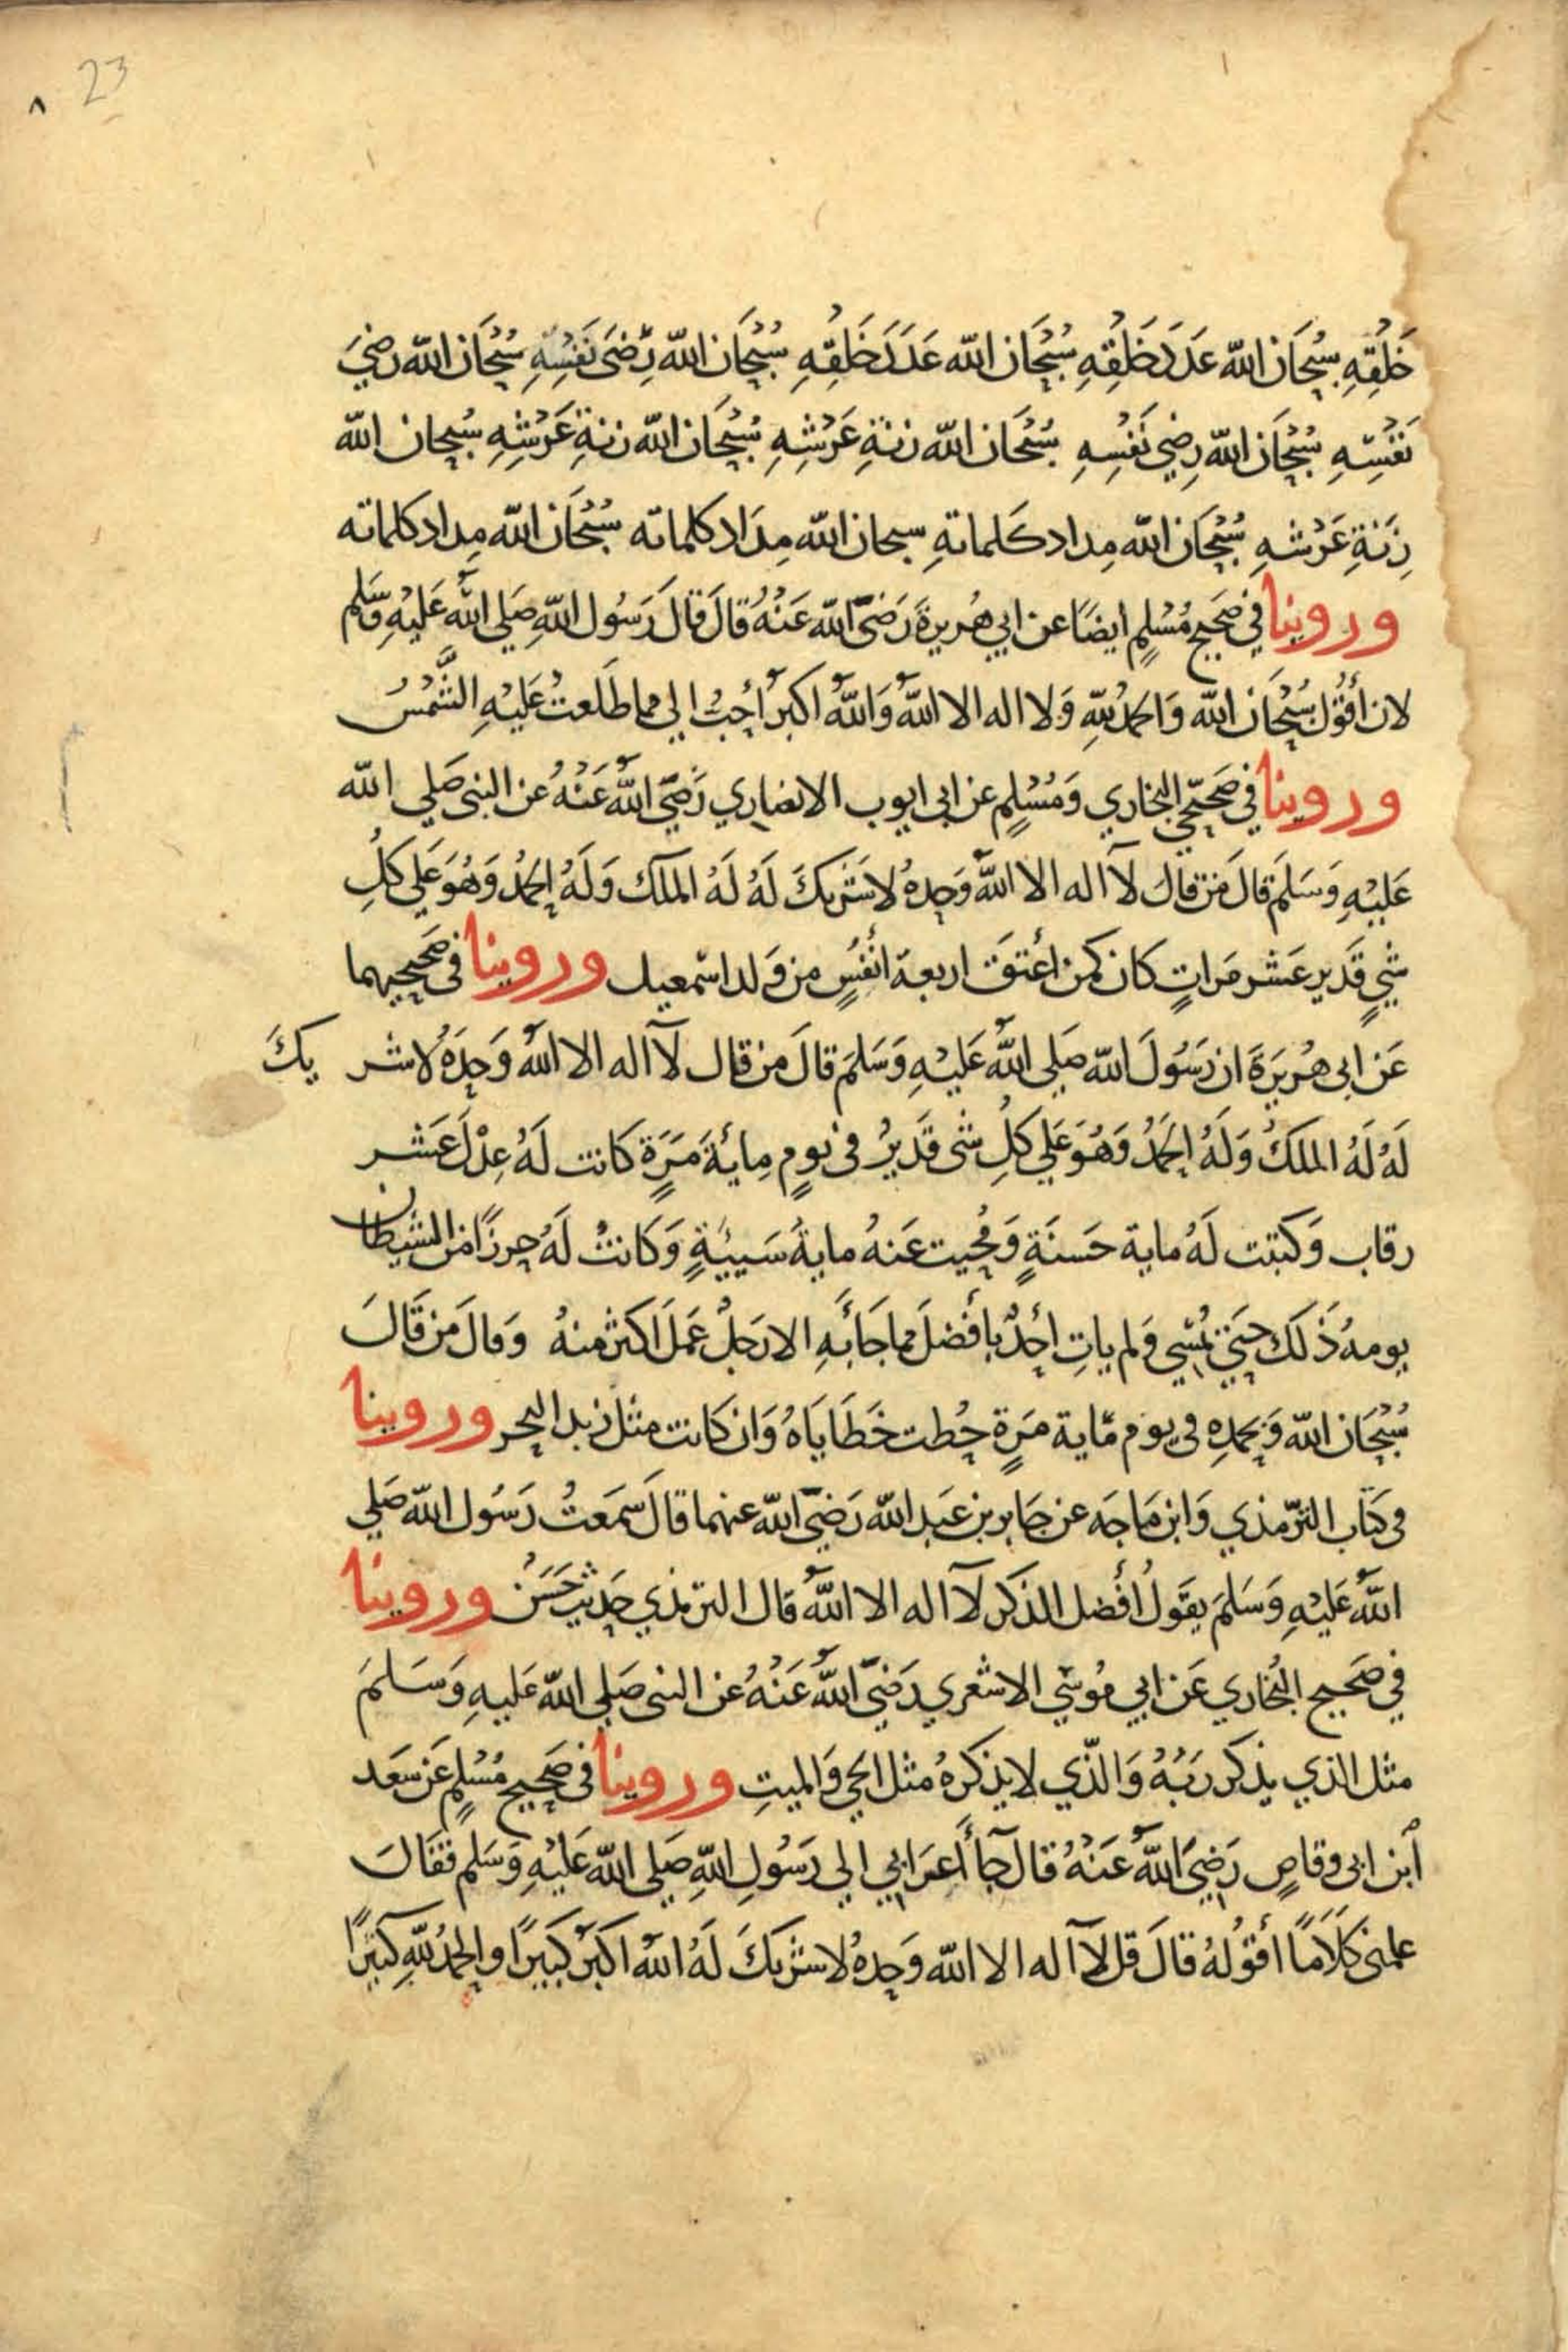 23
٨
خَلْقِهِ سُبْحَان الله عَدَدَ خَلْقِهِ سُبْحَان الله عَدَدَ خَلْقِهِ سُبْحَان الله رِضَى نَفْسِهِ سُبْحَان الله رضيَ
نَفْسِهِ سُبْحَان الله رِضي نَفْسِهِ سُبْحَان الله زنةِ عَرْشِهِ سُبْحَان الله زنةِ عَرْشِهِ سُبحان الله
زِنَةِ عَرْشهِ سُبْحَان الله مِداد كَلماتهِ سبحان الله مِدَاد كلماته سُبْحَان الله مِداد كلماته
وروينا في صَحيح مُسْلِمٍ ايضًا عن ابي هُريرةَ رَضيَ الله عَنْهُ قالَ قالَ رَسُول اللهِ صَلي اللهُ عَليْهِ وَسَلم
لان أقُول سُبْحَان الله وَالحمْدُ للهِ وَلا اله الا اللهُ وَاللهُ اكبرُ أحَبُ الي مما طَلَعتْ عَليْهِ الشَّمْسُ
وروينا في صَحيحَي البخاري وَمُسْلِمٍ عن ابى ايوب الانصاري رَضيَ اللهُ عَنْهُ عن النبى صَلي الله
عَليْهِ وَسَلمَ قالَ مَن قالَ لآ اله الا اللهُ وَحدهُ لا شَريكَ لَهُ لَهُ الملك وَلَهُ الحَمْدُ وَهُوَ عَلي كلِ
شيٍ قَدير عَشر مَراتٍ كان كمن اعتَقَ اربعة انفُسٍ من وَلد اسمعيل وروينا فى صَحيحيهما
عَن ابى هُرَيرَةَ ان رَسُولَ الله صَلي اللهُ عَليْهِ وَسَلمَ قالَ من قال لآ اله الا اللهُ وَحدَهُ لا شر يكَ
لَهُ لَهُ الملكُ وَلَهُ الحَمدُ وَهُوَ عَلي كلِ شى قَديرُ فى يومٍ مِايةَ مَرَةٍ كانت لَهُ عِدْلَ عَشر
رقاب وَكتبت لَهُ ماية حَسنَةٍ وَمُحيت عَنهُ مايةُ سَييةٍ وَكَانتْ لَهُ حِرزًا من الشيطان
يومهُ ذَلك حَتى يُمْسِي وَلم ياتِ احَدٌ بأفضلَ مما جَاءَ بَهِ الا رَجلُ عَملَ اكثر منهُ وَقالَ مَن قَالَ
سُبْحَان الله وَبحمدِهِ فى يوم مَاية مَرَةٍ حُطت خَطَايَاهُ وَان كَانت مثل زبد البحر وروينا
فى كتَاب الترمذي وَابن مَاجَه عن جَابر بن عَبد الله رَضيَ الله عنهما قالَ سَمعَتُ رَسُول الله صَلي
اللهُ عَليْهِ وَسَلمَ يقَولُ أفضل الذكر لآ اله الا اللهُ قال الترمذي حَديث حَسَنُ وروينا
في صَحيح البُخاري عَن ابي مُوسي الاشعري رَضيَ اللهُ عَنْهُ عن النبى صَلي الله عَليهِ وَسَلمَ
مثل الذي يذكر رَبَهُ وَالذّي لا يذكرهُ مثل الحَي وَالميتِ وروينا فى صَحيح مُسْلمٍ عَن سَعَد
أبن ابى وقاصٍ رَضيَ اللهُ عَنْهُ قال جَآ أعرَابي الي رَسُولِ اللهِ صَلي الله عَليْهِ وَسَلم فقَالَ
علمنى كَلَامًا أقوُلهُ قالَ قل لآ اله الا الله وَحدهُ لا شريكَ لَهُ اللهُ اكبَرُ كبَيرًا والحمدُ للهِ كثيرًا